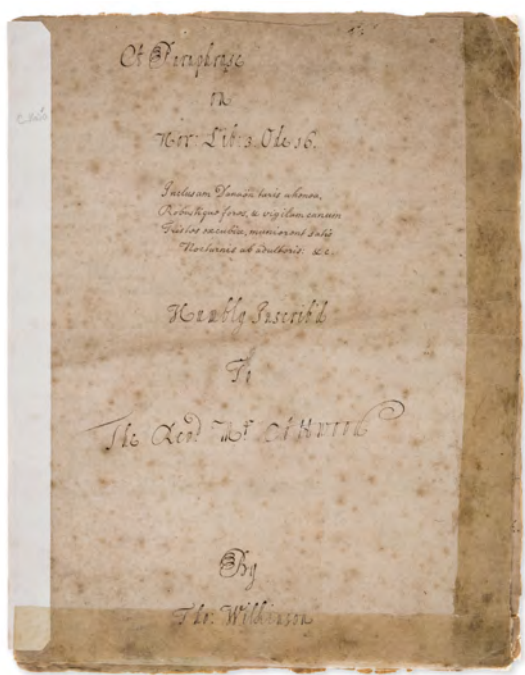 A Paraphrase
on
Hor: Lib: 3. Ode 16.
Inclusam Danaën turis ahenea,
Robustæque fores, & vigilum canum
Tristes excubiæ, munierant satis
Nocturnis ab adulteris: &c.
Humbly Inscrib'd
To
The Revd. Mr.
By
Tho: Wilkinson